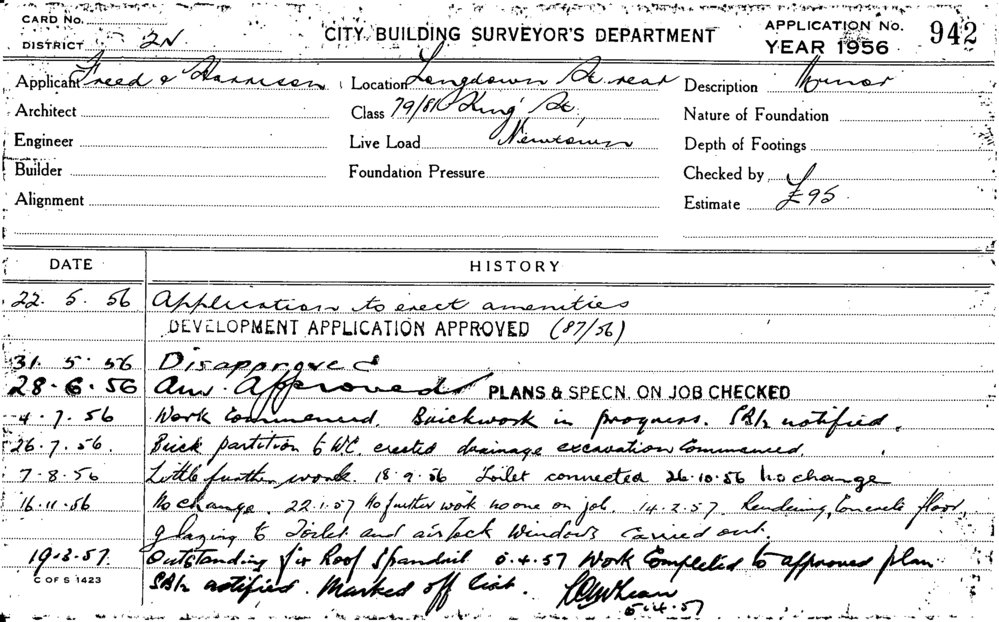 CARD No.
DISTRICT 2N
CITY BUILDING SURVEYOR'S DEPARTMENT
APPLICATION No. 942
YEAR 1956
Applicant Freed & Harrison
Location Longdown St rear
Description Minor
Architect
Class 79/81 King St,
Nature of Foundation
Engineer
Live Load Newtown
Depth of Footings
Builder
Foundation Pressure
Checked by
Alignment
Estimate £95
DATE HISTORY
22. 5. 56 Application to erect amenities
DEVELOPMENT APPLICATION APPROVED (87/56)
31. 5. 56 Disapproved
28. 6. 56 Am. Approved PLANS & SPECN. ON JOB CHECKED
4. 7. 56 Work Commenced. Brickwork in progress. notified.
26. 7. 56. Brick partition to WC. erected drainage excavation Commenced.
7. 8. 56 Little further work. 18.9.56 Toilet connected 26.10.56 No change
16.11.56 No change. 22.1.57 No further work no one on job. 14.2.57. Rendering, Concrete floor,
glazing to Toilet and airlock windows carried out.
19.3.57. Outstanding fix Roof Spandril 5.4.57 Work Completed to approved plan
notified. Marked off list.
5.4.57
C OF S 1423